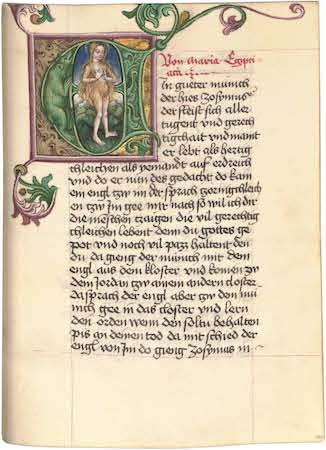 Von maria Egipci
aca
E in gueter münich
der hies Zosymus
der fleist sich aller
tugent und gerech
tigchait und maint
er lebt als hertig
chleichen als yemandt auf erdreich
und do er nun des gedacht do kam
ein engl zw im der sprach
zw im gee mir nach so wil ich dir
die menschen tzaigen die vil gerechtig
chleichen lebent denn du gottes ge
pot und noch vil pazz haltent den
du da gieng der münich mit dem
engl aus dem kloster und komen zw
dem Jordan zw ainem andern closter
da sprach der engl aber zw den mü
nich gee in das closter und lern
den orden wenn den soltu behalten
pis an deinen tod da mit schied der
engl von im do gieng Zosymus in